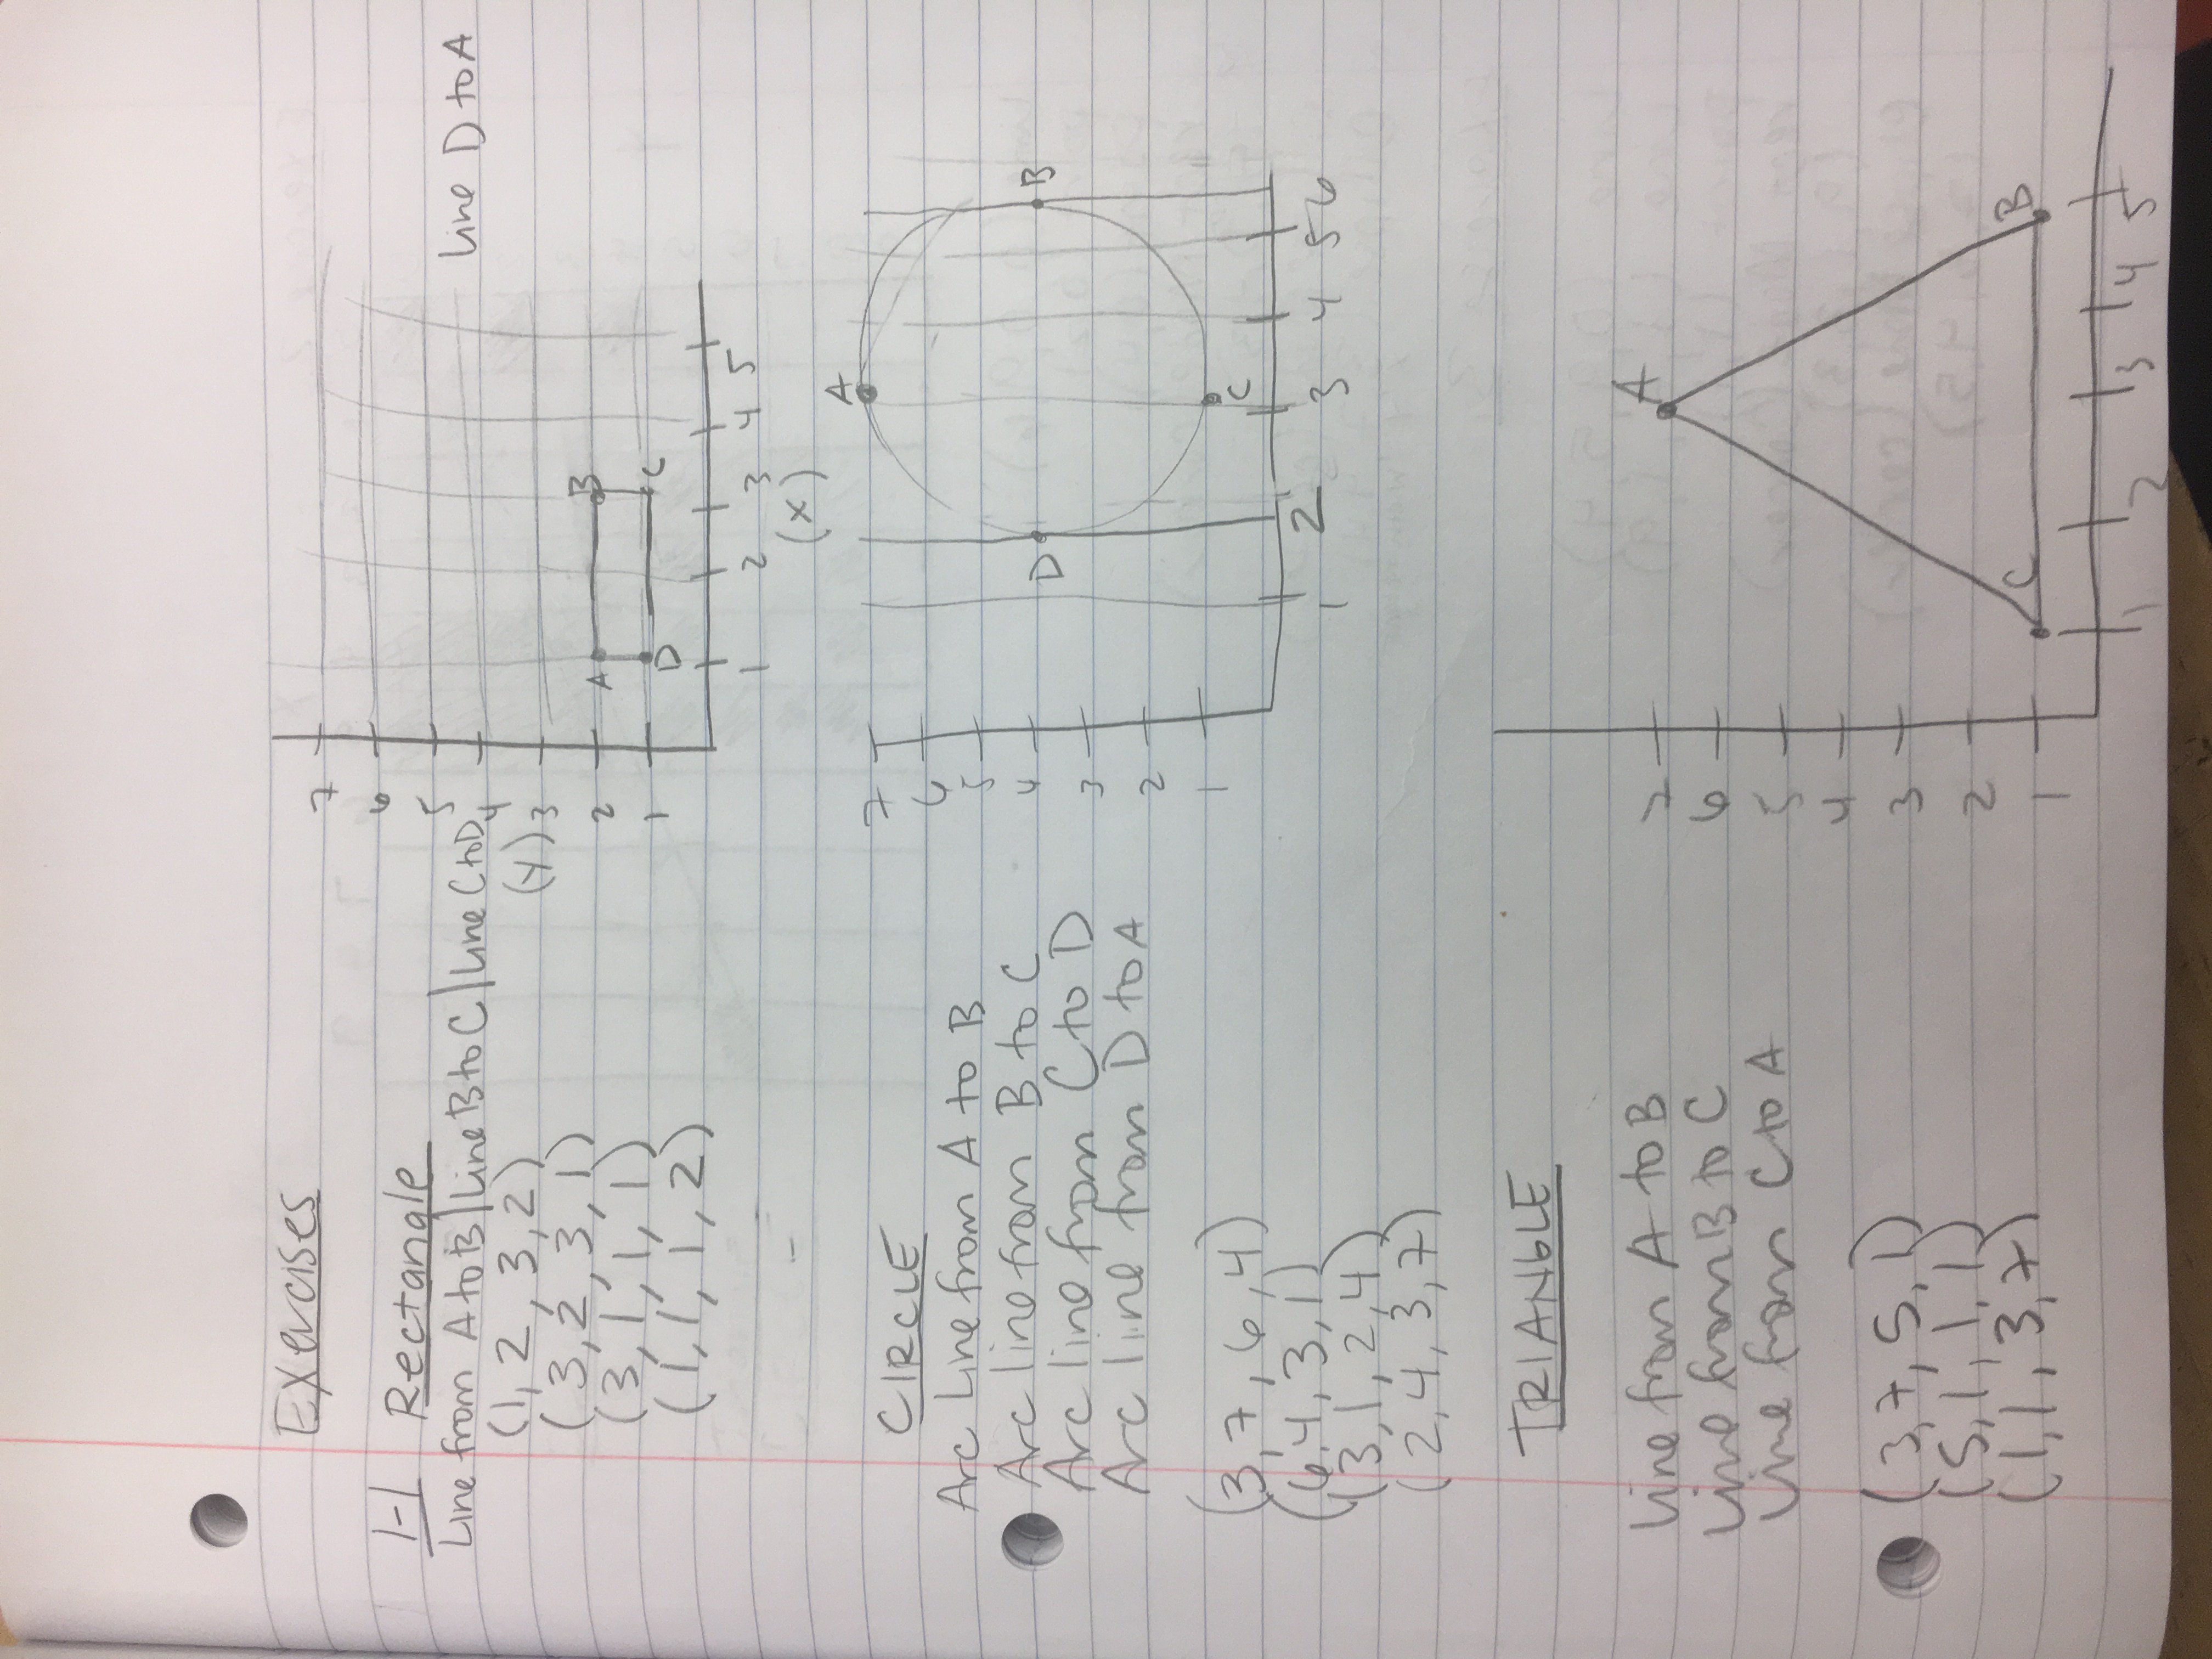 Exercises
1-1 Rectangle
Line from A to B | Line B to C | Line C to D
line D to A
(1, 2, 3, 2)
(3, 2, 3, 1)
(3, 1, 1, 1)
(1, 1, 1, 2)
7
6
5
4
(Y) 3
2 A B
1 D C
1 2 3 4 5
(X)
CIRCLE
Arc Line from A to B
Arc line from B to C
Arc line from C to D
Arc line from D to A
(3, 7, 6, 4)
(6, 4, 3, 1)
(3, 1, 2, 4)
(2, 4, 3, 7)
A
7
6
5
4 D B
3
2
1
C
1 2 3 4 5 6
TRIANGLE
Line from A to B
Line from B to C
Line from C to A
(3, 7, 5, 1)
(5, 1, 1, 1)
(1, 1, 3, 7)
A
7
6
5
4
3
2
1 C B
1 2 3 4 5